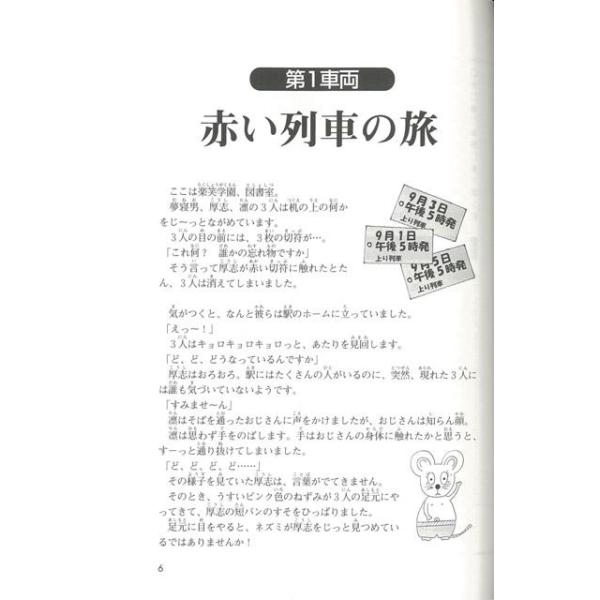 第1車両
赤い列車の旅
ここは楽笑学園、図書室。
夢寝男、厚志、凛の3人は机の上の何か
をじ〜っとながめています。
3人の目の前には、3枚の切符が…。
「これ何？ 誰かの忘れ物ですか」
そう言って厚志が赤い切符に触れたとた
ん、3人は消えてしまいました。
9月3日
午後5時発
上り列車
9月1日
午後5時発
上り列車
9月5日
午後5時発
上り列車
気がつくと、なんと彼らは駅のホームに立っていました。
「えっ〜！」
3人はキョロキョロキョロっと、あたりを見回します。
「ど、ど、どうなっているんですか」
厚志はおろおろ。駅にはたくさんの人がいるのに、突然、現れた3人に
は誰も気づいていないようです。
「すみませ〜ん」
凛はそばを通ったおじさんに声をかけましたが、おじさんは知らん顔。
凛は思わず手をのばします。手はおじさんの身体に触れたかと思うと、
すーっと通り抜けてしまいました。
「ど、ど、ど、ど……」
その様子を見ていた厚志は、言葉がでてきません。
そのとき、うすいピンク色のねずみが3人の足元にや
ってきて、厚志の短パンのすそをひっぱりました。
足元に目をやると、ネズミが厚志をじっと見つめてい
るではありませんか！
6